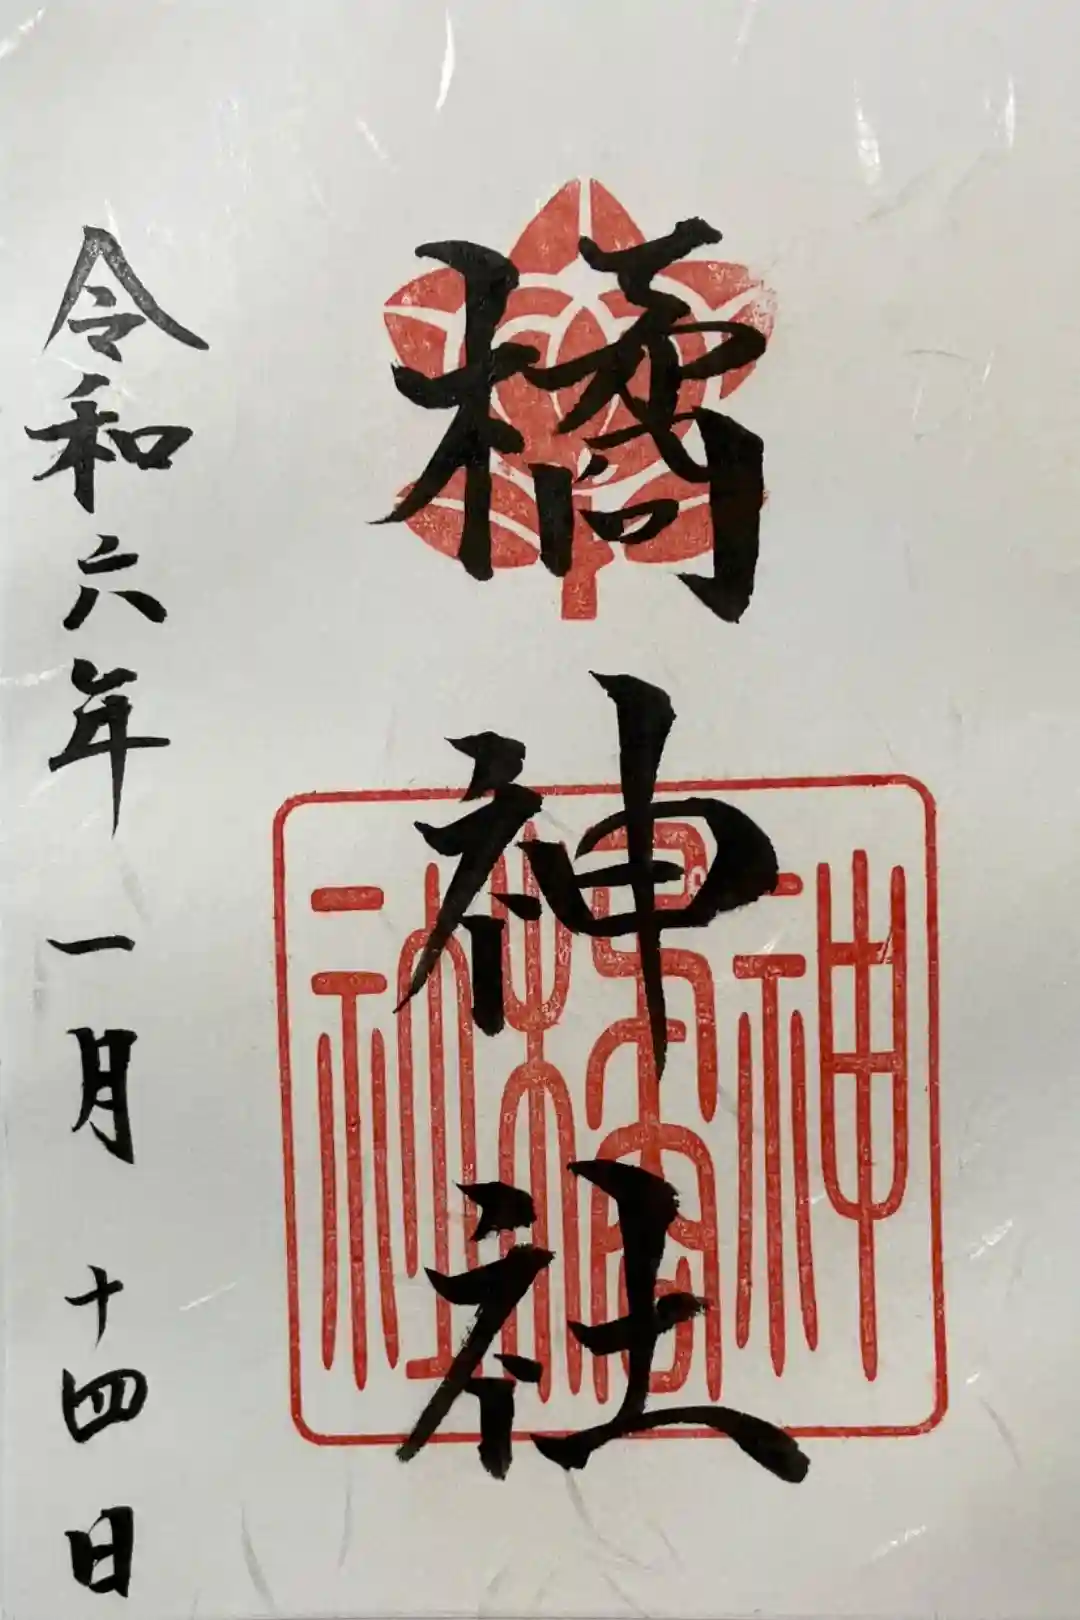 橘神社
神橘社
令和六年一月十四日